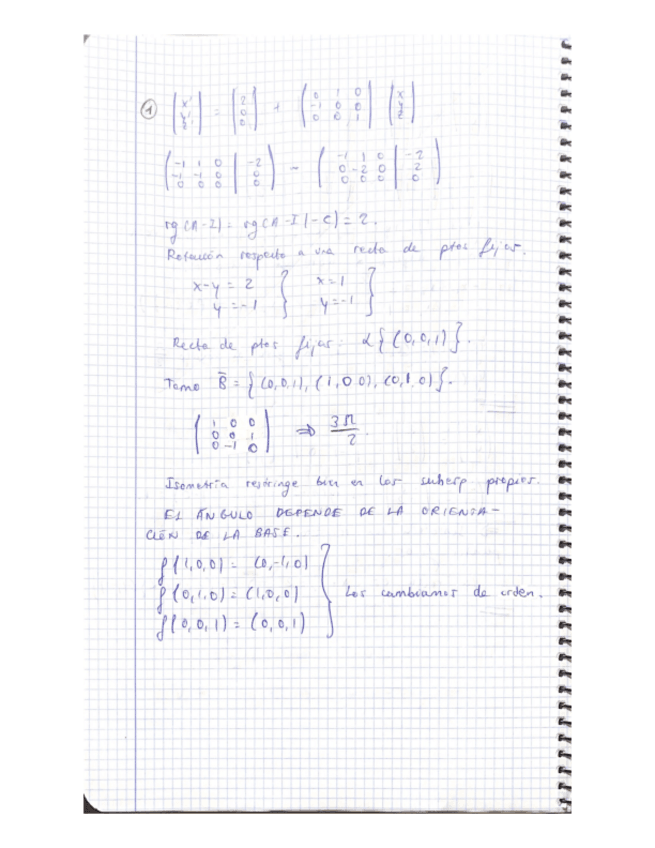 1 (x' y' z') = (2 0 0) + (0 1 0 / -1 0 0 / 0 0 1) (x y z)
(-1 1 0 | -2 / -1 -1 0 | 0 / 0 0 0 | 0) ~ (-1 1 0 | -2 / 0 -2 0 | 2 / 0 0 0 | 0)
rg(A-I) = rg(A-I|-C) = 2.
Rotación respecto a una recta de ptos fijos.
x-y = 2 } x=1 }
y = -1 } y=-1 }
Recta de ptos fijos: L{(0,0,1)}.
Tomo B̄ = {(0,0,1), (1,0,0), (0,1,0)}.
(1 0 0 / 0 0 1 / 0 -1 0) ⇒ 3π/2.
Isometría restringe bien en los subesp propios.
El ÁNGULO DEPENDE DE LA ORIENTA-
CIÓN DE LA BASE.
f(1,0,0) = (0,-1,0)
f(0,1,0) = (1,0,0) } Los cambiamos de orden.
f(0,0,1) = (0,0,1)